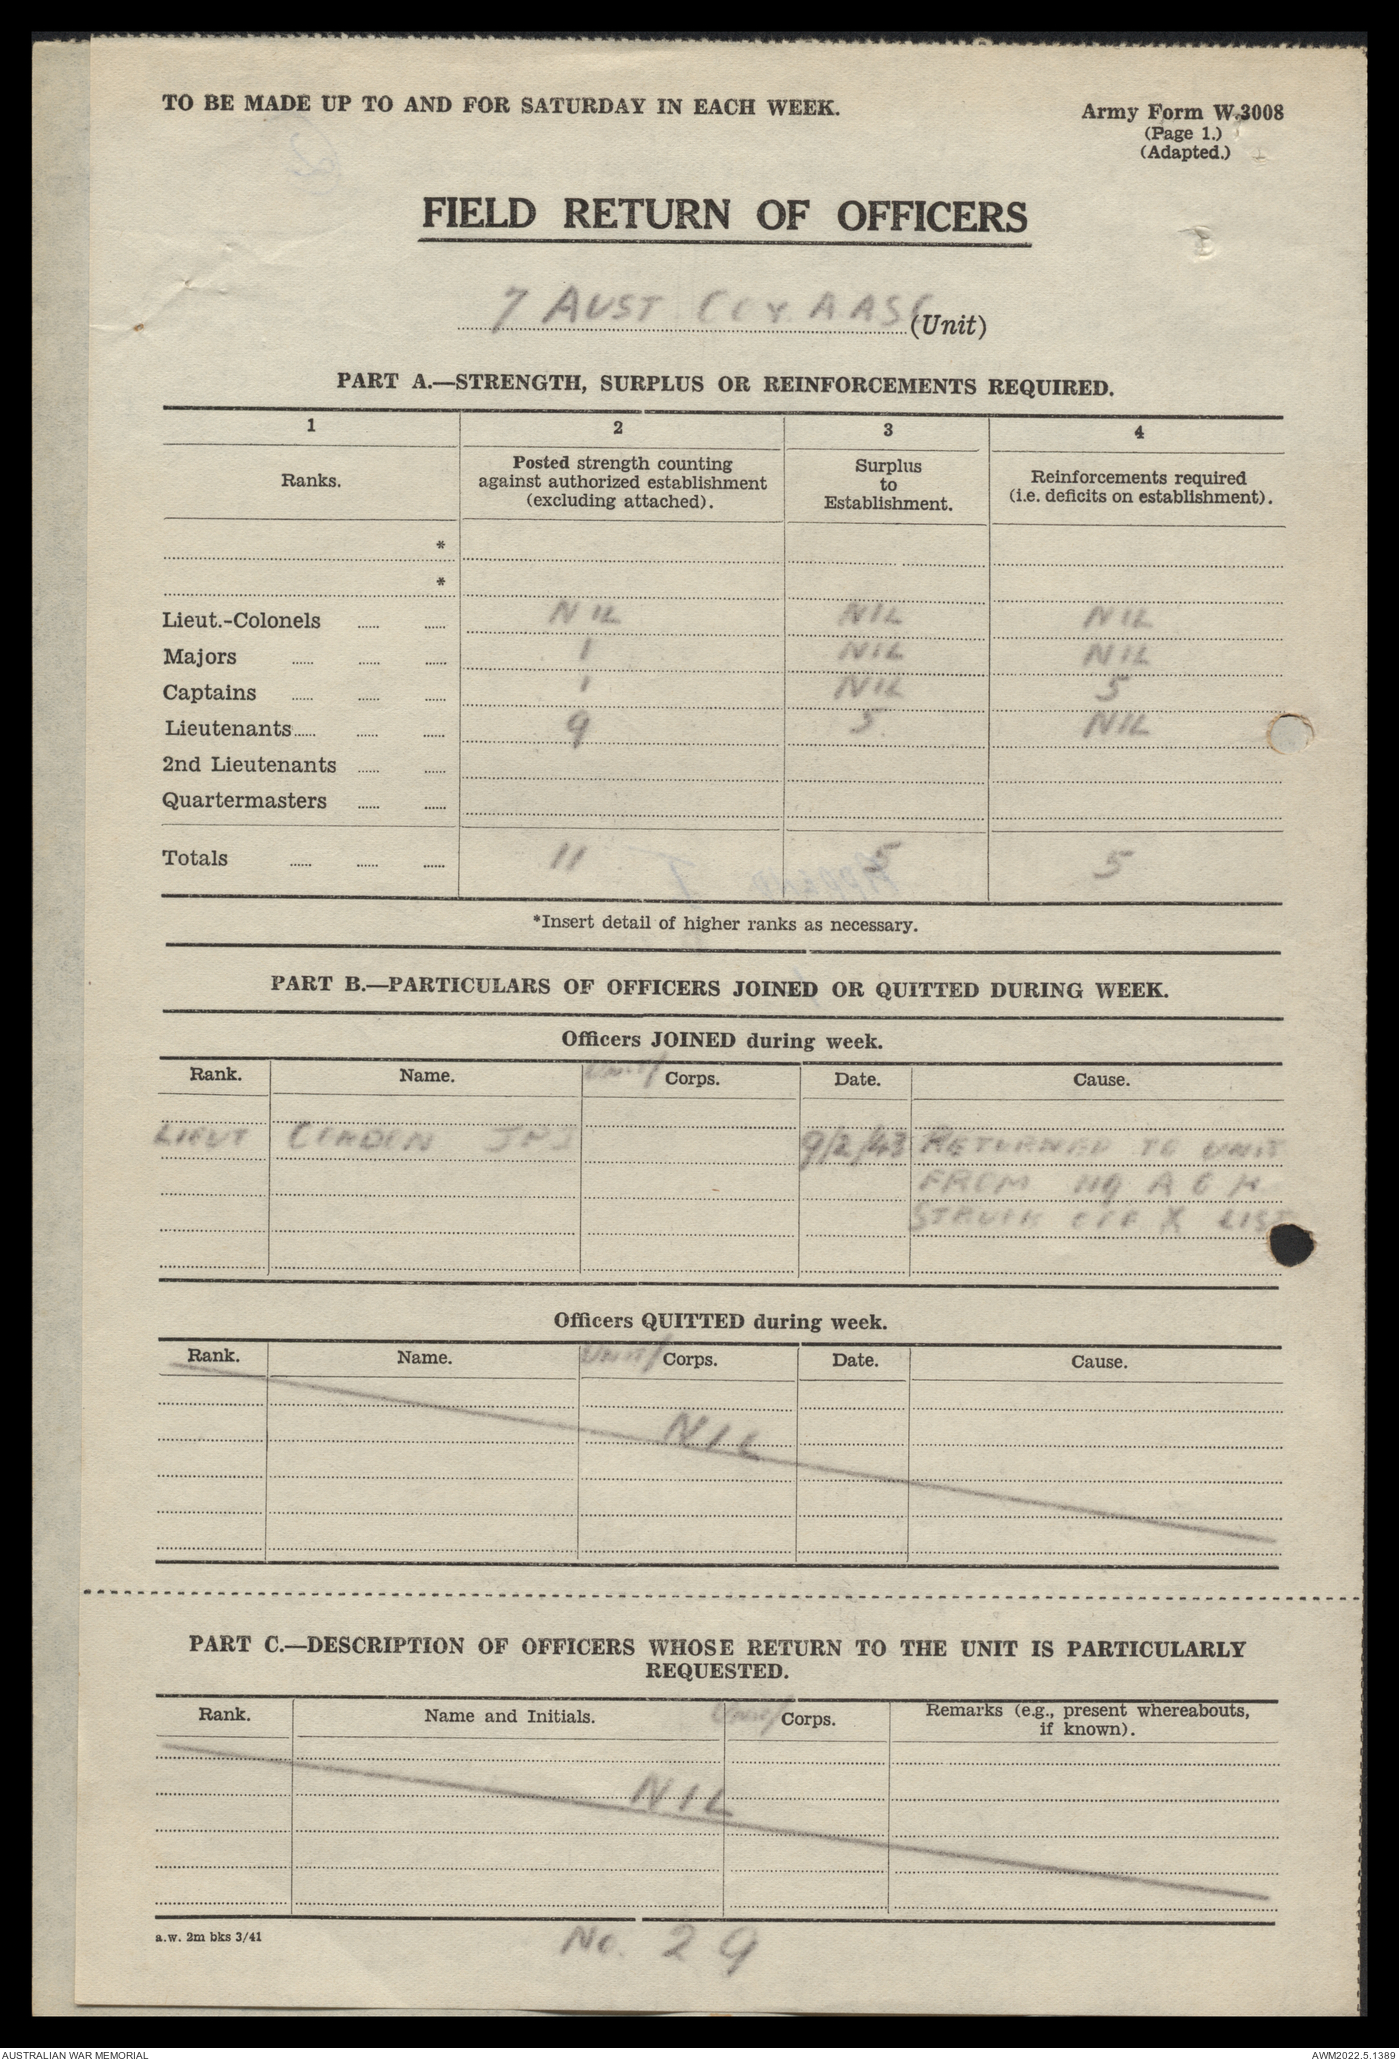 TO BE MADE UP TO AND FOR SATURDAY IN EACH WEEK.
Army Form W.3008
(Page 1.)
(Adapted.)
FIELD RETURN OF OFFICERS
7 AUST COY AASC (Unit)
PART A.—STRENGTH, SURPLUS OR REINFORCEMENTS REQUIRED.
1 2 3 4
Ranks. Posted strength counting against authorized establishment (excluding attached). Surplus to Establishment. Reinforcements required (i.e. deficits on establishment).
*
*
Lieut.-Colonels NIL NIL NIL
Majors 1 NIL NIL
Captains 1 NIL 5
Lieutenants 9 5 NIL
2nd Lieutenants
Quartermasters
Totals 11 5 5
*Insert detail of higher ranks as necessary.
PART B.—PARTICULARS OF OFFICERS JOINED OR QUITTED DURING WEEK.
Officers JOINED during week.
Rank. Name. Unit/ Corps. Date. Cause.
LIEUT 9/2/43 RETURNED TO UNIT
FROM
STRUCK OFF X LIST
Officers QUITTED during week.
Rank. Name. Unit/ Corps. Date. Cause.
NIL
PART C.—DESCRIPTION OF OFFICERS WHOSE RETURN TO THE UNIT IS PARTICULARLY
REQUESTED.
Rank. Name and Initials. Unit/ Corps. Remarks (e.g., present whereabouts, if known).
NIL
a.w. 2m bks 3/41
No. 29
AUSTRALIAN WAR MEMORIAL
AWM2022.5.1389